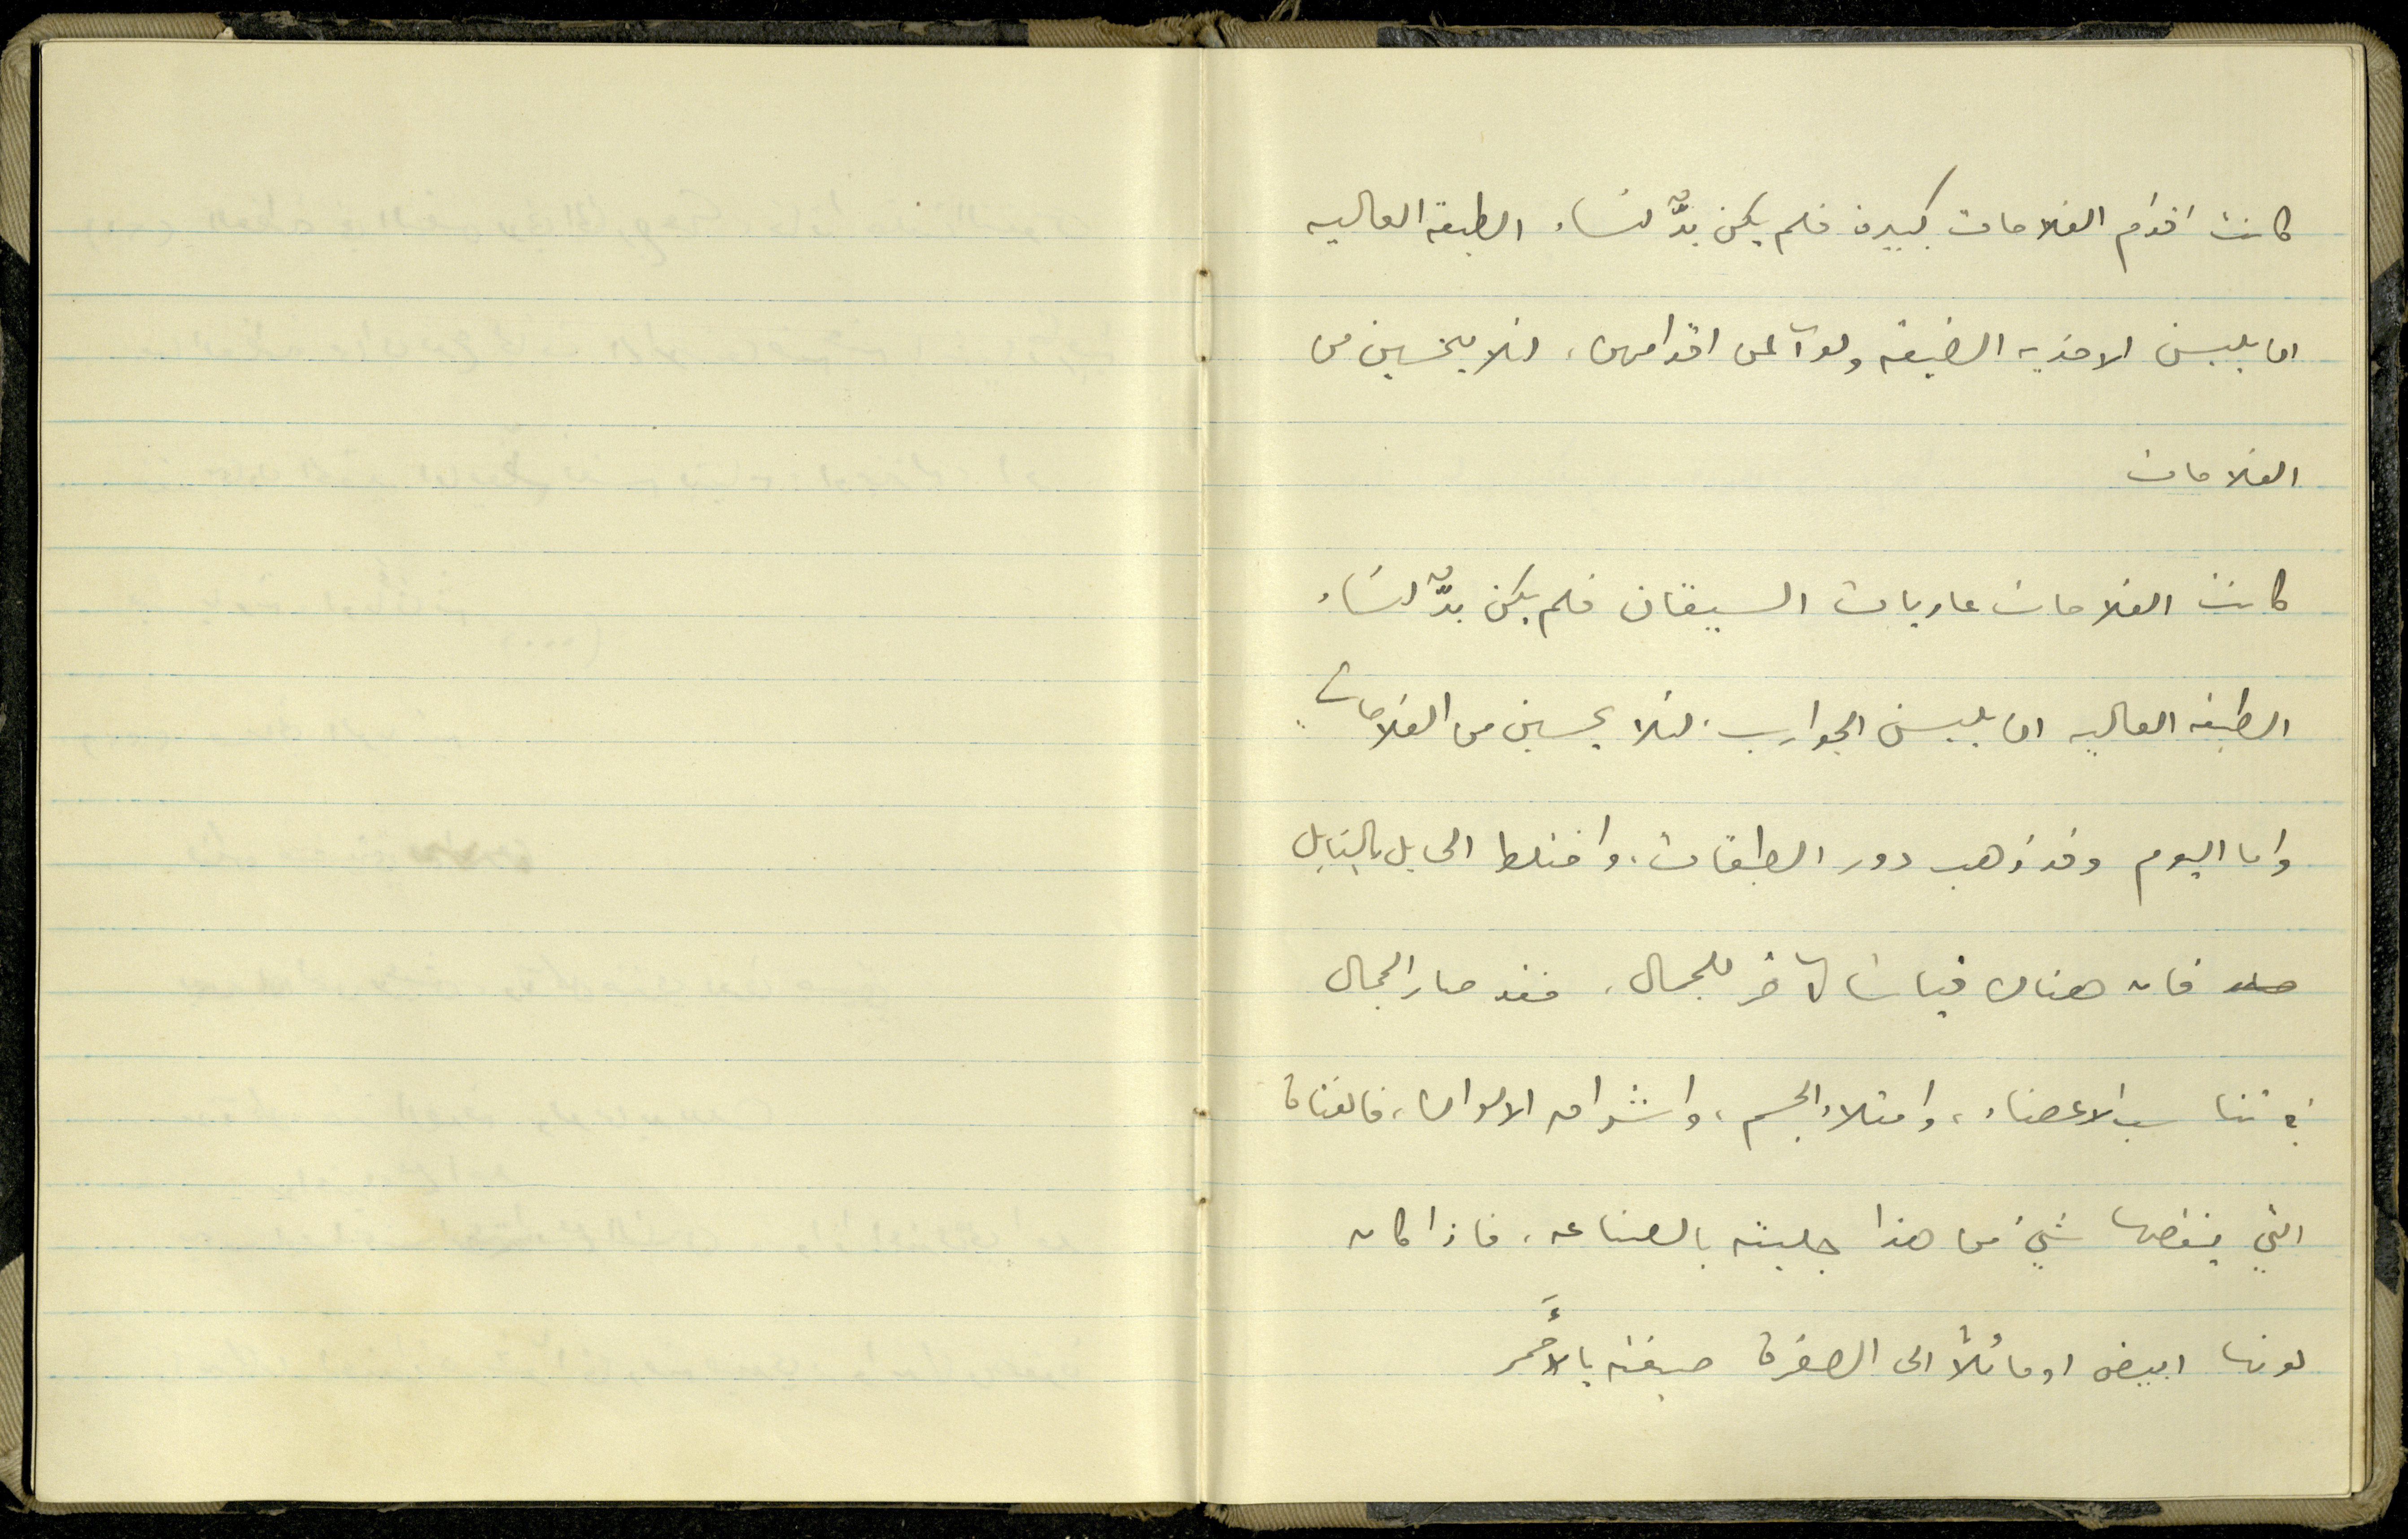 كانت اقدام الفلاحات كبيرة فلم يكن بدٌّ لنساء الطبقة العاليه
ان يلبسن الاحذيه الضيقه ولو آلمن اقدامهن، لئلا يحسبن من
الفلاحات
كانت الفلاحات عاريات السيقان فلم يكن بدٌّ لنساء
الطبقه العاليه ان يلبسن الجوارب، لئلا يحسبن من الفلاحات
واما اليوم وقد ذهب دور الطبقات، واختلط الحابل بالنابل
فان هناك قياسا آخر للجمال، فقد صار الجمال
في تناسب الاعضاء، وامتلاء الجسم، واشراق الالوان، فالفتاة
التي ينقصها شيء من هذا جلبته بالصناعه، فاذا كان
لونها ابيض او مائلاً الى الصفرة صبغته بالأحمر